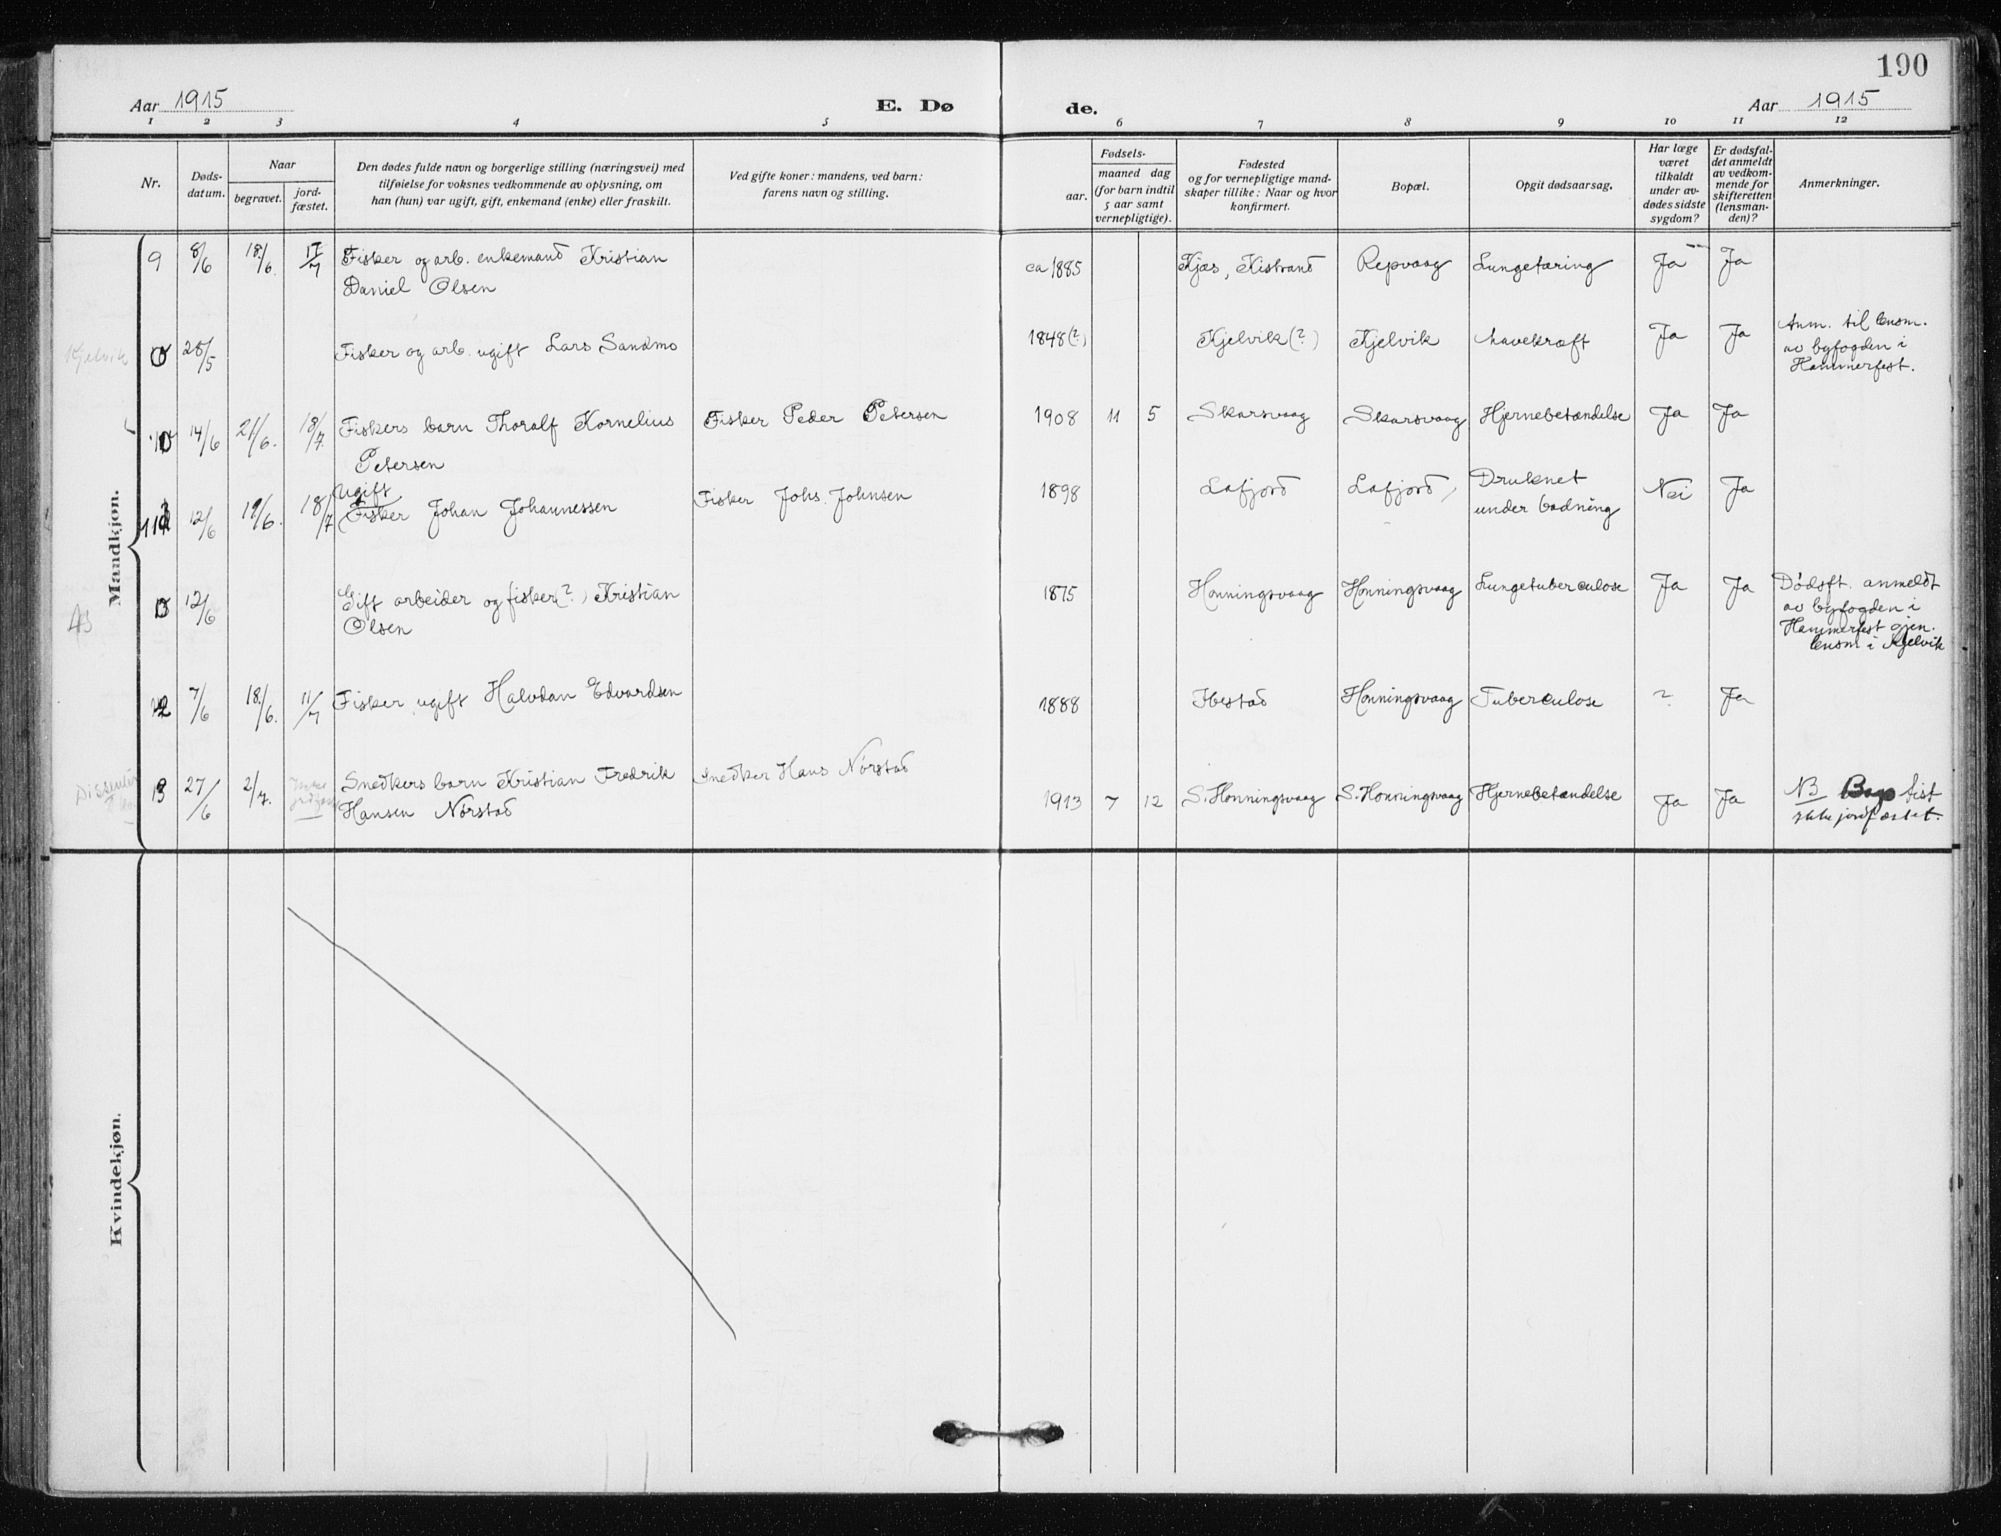 190
Aar 1915
E. Dø
de.
Aar 1915
1 2 3 4 5 6 7 8 9 10 11 12
Nr.
Døds-
datum.
Naar
begravet.
jord-
fæstet.
Den dødes fulde navn og borgerlige stilling (næringsvei) med
tilføielse for voksnes vedkommende av oplysning, om
han (hun) var ugift, gift, enkemand (enke) eller fraskilt.
Ved gifte koner: mandens, ved barn:
farens navn og stilling.
Fødsels-
aar.
maaned dag
(for barn indtil
5 aar samt
vernepligtige).
Fødested
og for vernepligtige mand-
skaper tillike: Naar og hvor
konfirmert.
Bopæl.
Opgit dødsaarsag.
Har læge
været
tilkaldt
under av-
dødes sidste
sygdom?
Er dødsfal-
det anmeldt
av vedkom-
mende for
skifteretten
(lensman-
den)?
Anmerkninger.
Mandkjøn.
9 8/6 18/6. 17/7 Fisker og arb. enkemand Kristian
Daniel Olsen
ca 1885 Kjæs, Kistrand Repvaag Lungetæring Ja Ja
Kjelvik 0 28/5 Fisker og arb. ugift Lars Sandmo
1848(?) Kjelvik(?) Kjelvik Mavekræft Ja Ja
Anm. til lensm.
av byfogden i
Hammerfest.
10 14/6 21/6. 18/7. Fiskers barn Thoralf Kornelius
Petersen
Fisker Peder Petersen
1908 11 5 Skarsvaag Skarsvaag Hjernebetændelse Ja Ja
11 12/6 19/6. 18/7 Ugift
Fisker Johan Johannessen
Fisker Johs. Johnsen
1898 Lafjord Lafjord Druknet
under badning
Nei Ja
0 12/6 Gift arbeider og fisker(?) Kristian
Olsen
1875 Honningsvaag Honningsvaag Lungetuberculose Ja Ja
Dødsf. anmeldt
av byfogden i
Hammerfest gjen.
lensm i Kjelvik
12 7/6 18/6. 11/7 Fisker ugift Halvdan Edvardsen
1888 Ibestad Honningsvaag Tuberculose ? Ja
Dissenter 13 27/6 2/7. Ikke
jordfæstet
Snedkers barn Kristian Fredrik
Hansen Nørstad
Snedker Hans Nørstad
1913 7 12 S. Honningsvaag S. Honningsvaag Hjernebetændelse Ja Ja
NB
ikke jordfæstet.
Kvindekjøn.